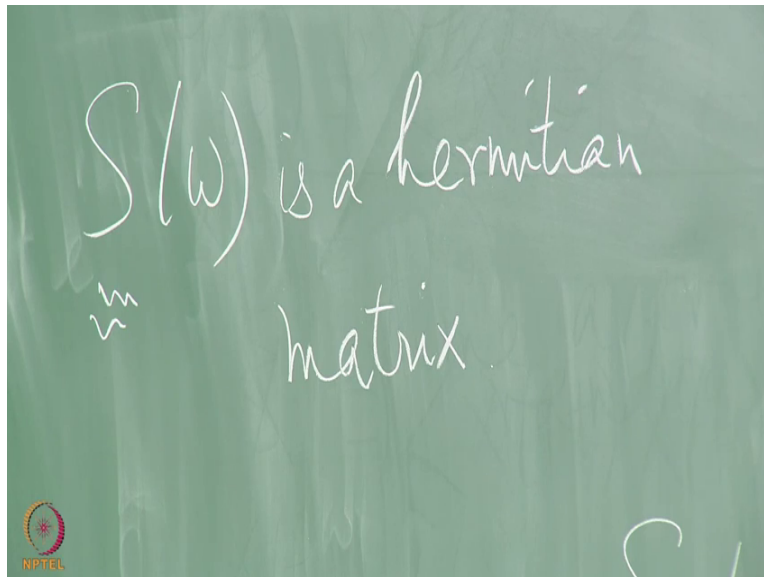 S(ω) is a hermitian
matrix.
NPTEL
S